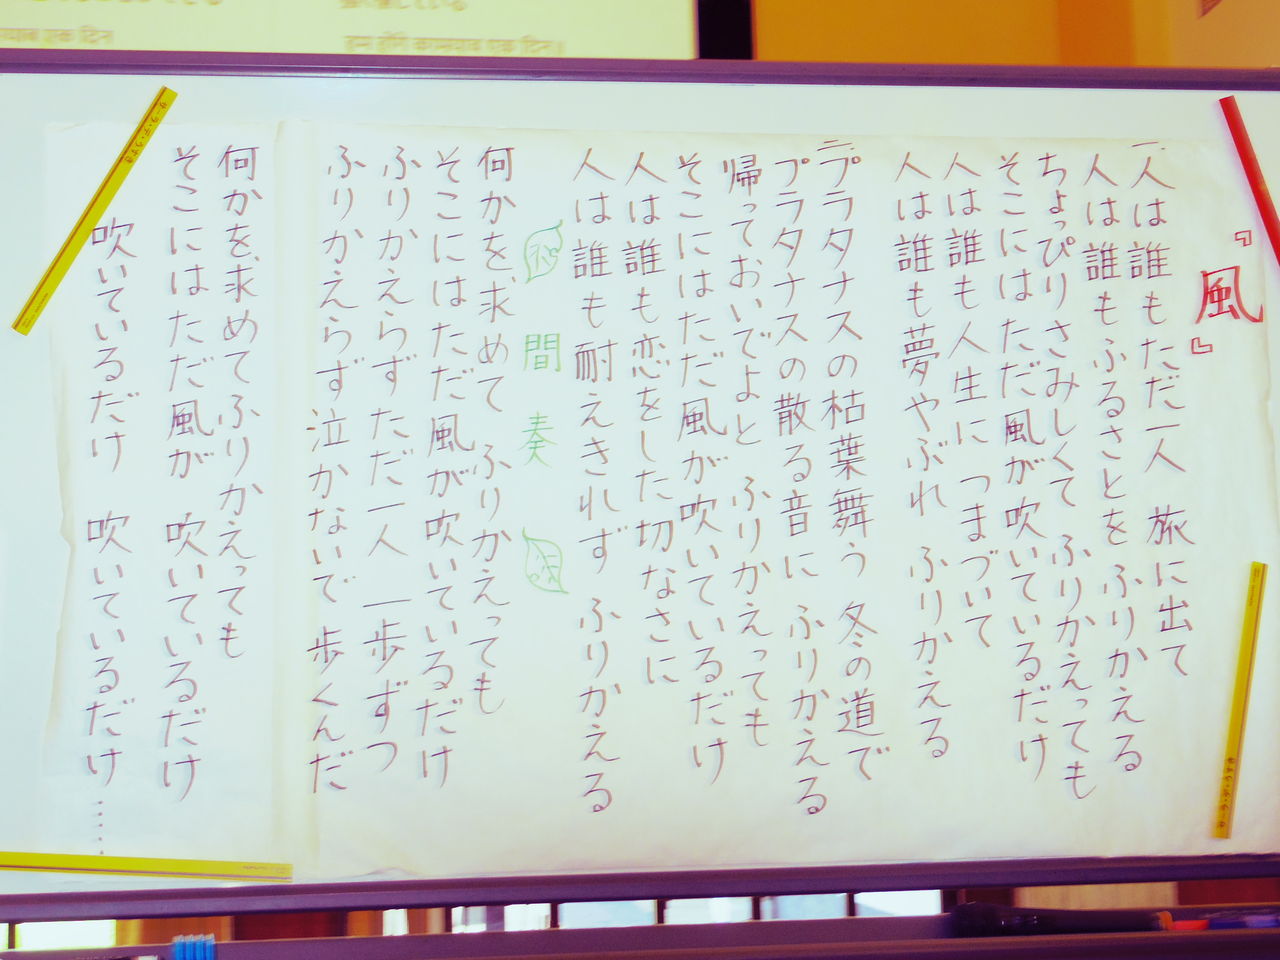 हम होंगे कामयाब एक दिन।
『風』
一 人は誰もただ一人 旅に出て
人は誰もふるさとを ふりかえる
ちょっぴりさみしくて ふりかえっても
そこにはただ風が吹いているだけ
人は誰も人生に つまづいて
人は誰も夢やぶれ ふりかえる
二 プラタナスの枯葉舞う 冬の道で
プラタナスの散る音に ふりかえる
帰っておいでよと ふりかえっても
そこにはただ風が吹いているだけ
人は誰も恋をした切なさに
人は誰も耐えきれず ふりかえる
間 奏
何かを、求めて ふりかえっても
そこにはただ風が吹いているだけ
ふりかえらず ただ一人 一歩ずつ
ふりかえらず 泣かないで 歩くんだ
何かを、求めてふりかえっても
そこにはただ風が 吹いているだけ
吹いているだけ 吹いているだけ……